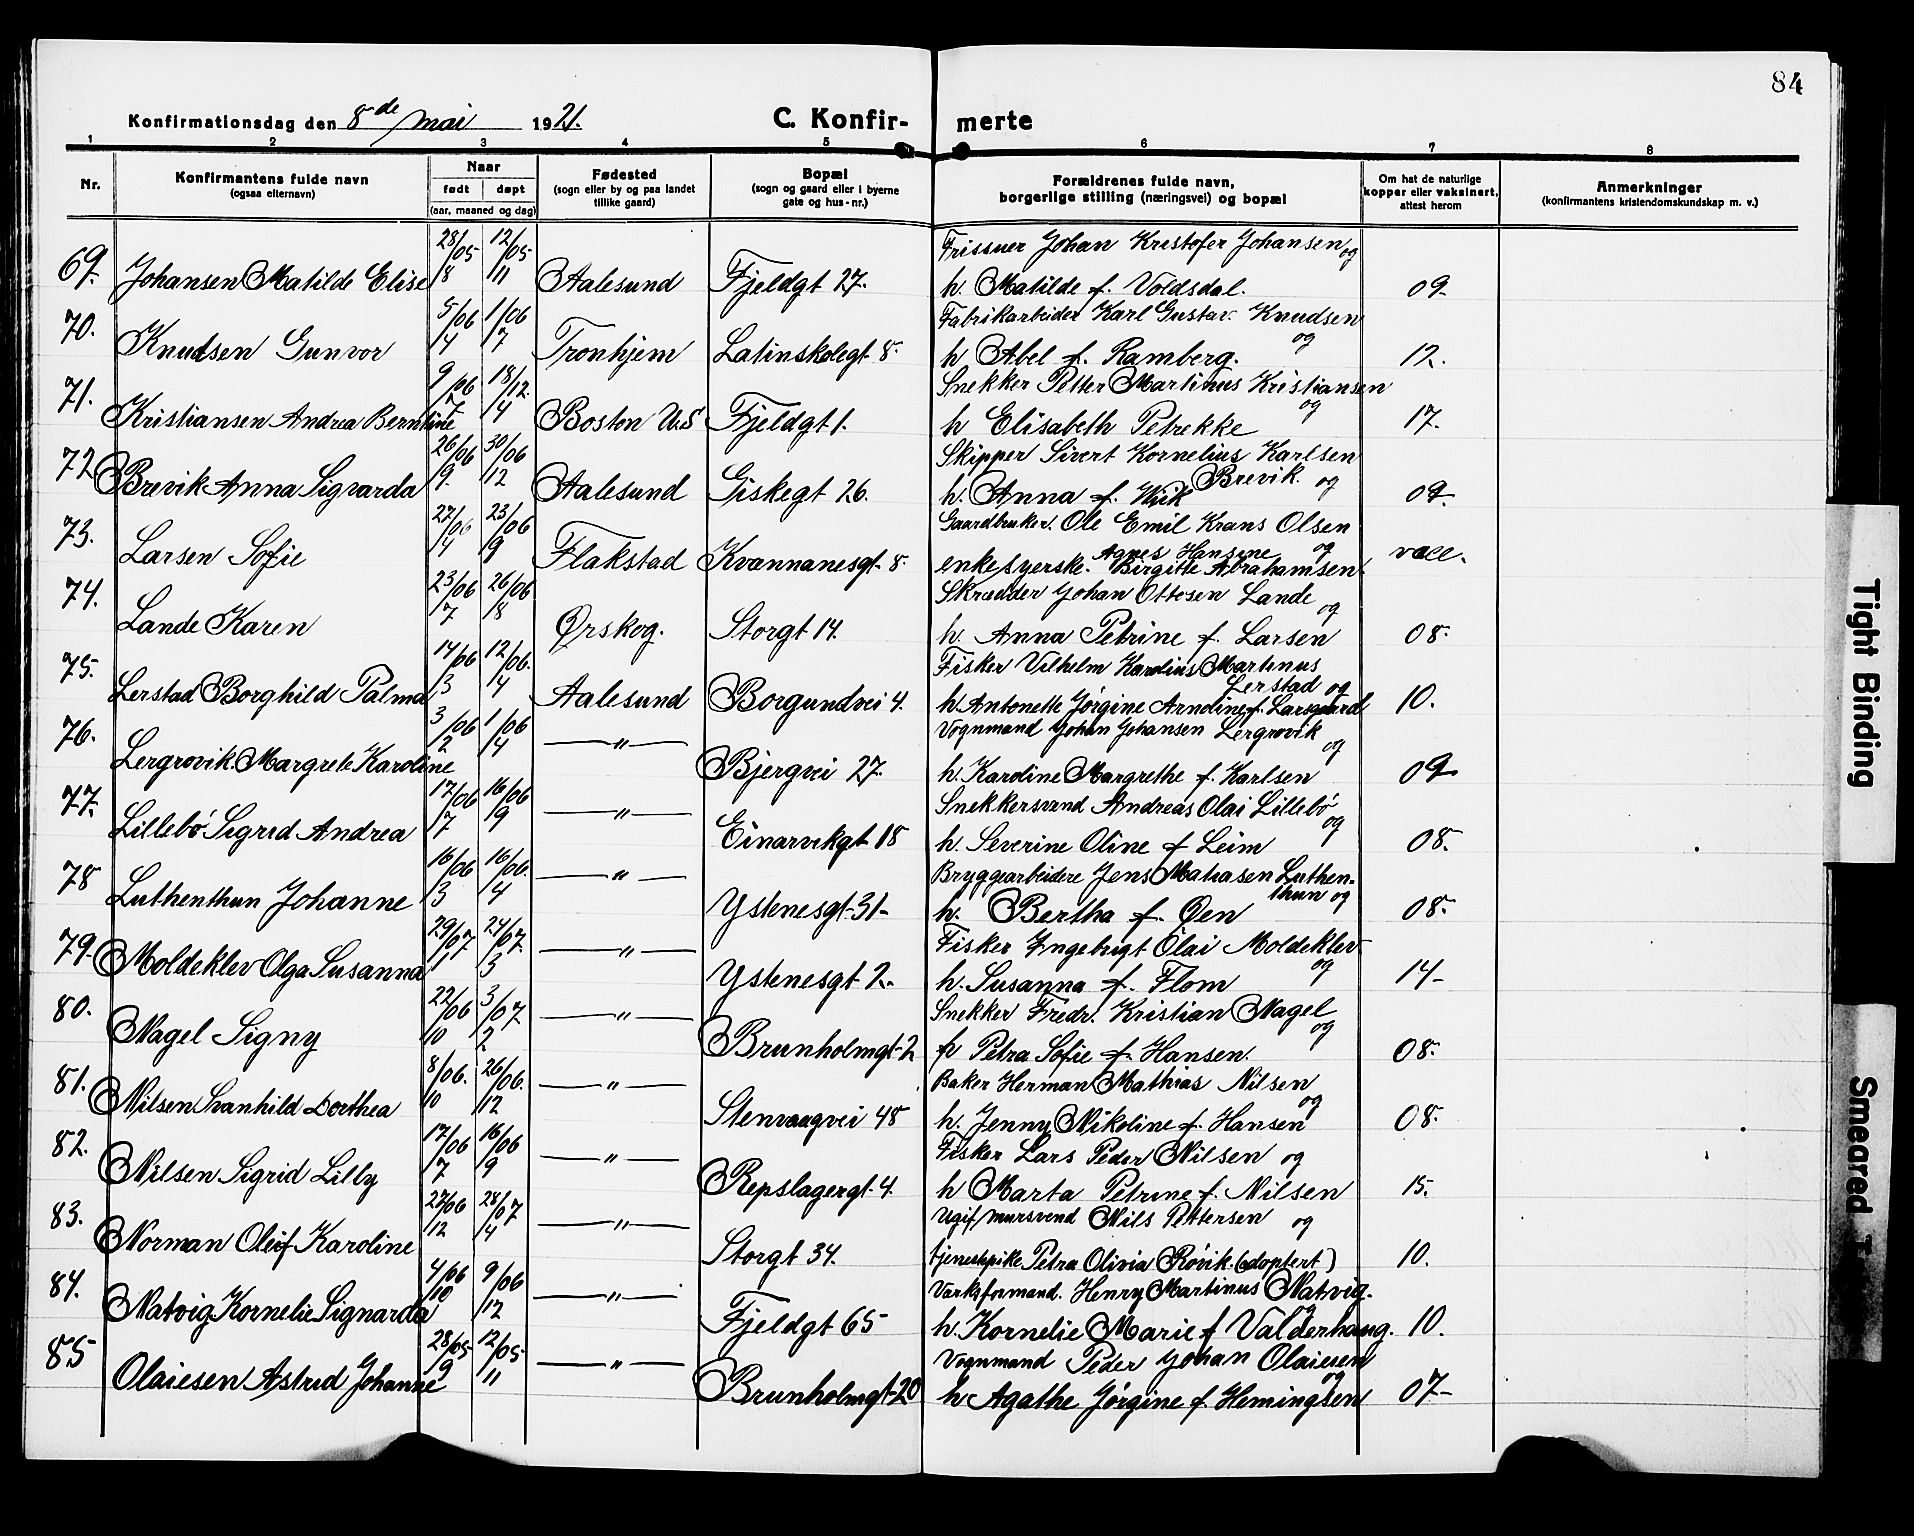 84
Konfirmationsdag den 8de mai 1921.
C. Konfir- merte
1 2 3 4 5 6 7 8
Nr.
Konfirmantens fulde navn
(ogsaa efternavn)
Naar
født døpt
(aar, maaned og dag)
Fødested
(sogn eller by og paa landet
tillike gaard)
Bopæl
(sogn og gaard eller i byerne
gate og hus-nr.)
Forældrenes fulde navn,
borgerlige stilling (næringsvei) og bopæl
Om hat de naturlige
kopper eller vaksinert,
attest herom
Anmerkninger
(konfirmantens kristendomskundskap m. v.)
28/05 12/05 Frissuer Johan Kristofer Johansen og
69. Johansen Matilde Elise 8 11 Aalesund Fjeldgt 27. h. Matilde f. Voldsdal. 09-
5/06 1/06 Fabrikarbeider Karl Gustav Knudsen og
70. Knudsen Gunvor 14 17 Tronhjem Latinskolegt 8. h Abel f. Ramberg. 12.
9/06 18/12. Snekker Petter Martinus Kristiansen og
71. Kristiansen Andrea Berntine 7 4 Boston U.S Fjeldgt 1. h Elisabeth Petrekke 17.
26/06 30/06 Skipper Sivert Kornelius Karlsen Brevik. og
72 Brevik Anna Sigvarda 9. 12 Aalesund Giskegt 26. h. Anna f. Wiik 09.
27/06 23/06 Gaardbruker. Ole Emil Krans Olsen og
73. Larsen Sofie 4 9 Flakstad Kvannanesgt. 8. enke syerske. Agnes Hansine Birgitte Abrahamsen. vacc.
23/06 26/06 Skrædder Johan Ottesen Lande og
74. Lande Karen 7 8 Ørskog. Storgt 14. h. Anna Petrine f. Larsen 08.
14/06 12/06. Fisker Vilhelm Karolius Martinus Lerstad og
75. Lerstad Borghild Palma 3 4 Aalesund Borgundvei 4. h. Antonette Jørgine Arndine f. Larsgaard 10.
3/06 1/06 Vognmand Johan Johansen Lergrovik og
76. Lergrovik. Margrete Karoline 2 4 —"— Bjergvei 27. h. Karoline Margrethe f. Karlsen 09
17/06 16/06 Snekkersvend Andreas Olai Lillebö og
77. Lillebö Sigrid Andrea 7 9 —"— Einarvikgt 18 h. Severine Oline f Leim 08.
16/06 16/06. Bryggearbeidere Jens Matiasen Luthen-
thun og
78 Luthenthun Johanne 3 4 —"— Ystenesgt-31- h. Bertha f. Øen 08.
29/07 24/07. Fisker Ingebrigt Olai Moldeklev og
79. Moldeklev Olga Susanna 1 3 —"— Ystenesgt 2.- h. Susanna f. Flom 14-
22/06 3/07. Snekker Fredr. Kristian Nagel og
80. Nagel Signy 10 2 —"— Brunholmgt-2 h Petra Sofie f. Hansen. 08.
8/06. 26/06. Baker Herman Mathias Nilsen og
81. Nilsen Svanhild Dorthea 10 12 —"— Stenvaagvei 48 h. Jenny Nikoline f. Hansen 08.
17/06 16/06 Fisker Lars Peder Nilsen og
82. Nilsen Sigrid Lilly 7 9 —"— Repslagergt. 4. h Marta Petrine f. Nilsen 15.
27/06 28/07 Ugif mursvend Nils Pettersen og
83. Norman Oleif Karoline 12 4 —"— Storgt 34. tjenestepike Petra Olivia Rövik. (adoptert) 10.
4/06 9/06 Verksformand. Henry Martinus Natvig. og
84. Natvig Kornelie Signarda 10 12 —"— Fjeldgt 65 h. Kornelie Marie f Valderhaug. 10.
28/05 12/05. Vognmand Peder Johan Olaiesen og
85 Olaiesen Astrid Johanne 9 11 —"— Brunholmgt-20 h Agathe Jørgine f. Hemingsen 07-
Tight Binding
Smeared